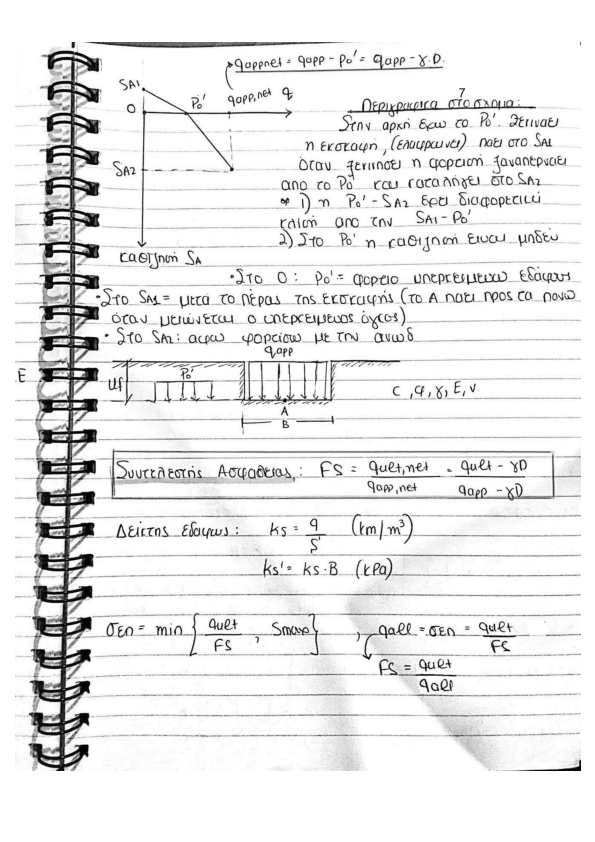 qappnet = qapp - Po' = qapp - γ.D.
SA1
Po'
qapp,net q
0
SA2
καθίζηση SA
7
Περιγραφικα στο σχημα:
Στην αρχή εχω το Po'. Ξεκιναει
η εκσκαφη, (ελαφρωνει) παει στο SA1
όταν ξεκινησει η φορτιση ξαναπερναει
απο το Po' και καταληγει στο SA2
1) η Po' - SA2 εχει διαφορετικη
κλιση απο την SA1 - Po'
2) Στο Po' η καθιζηση ειναι μηδεν
• Στο 0: Po' = φορτιο υπερκειμενου εδαφους
• Στο SA1 = μετά το πέρας της εκσκαφής (το Α παει προς τα πανω
όταν μειώνεται ο υπερκειμενος όγκος)
• Στο SA2: αφου φορτισω με την ανωδ
qapp
E
Uf
Po'
c, φ, γ, E, ν
A
B
Συντελεστης Ασφαλειας: FS = qult,net / qapp,net = qult - γD / qapp - γD
Δείκτης εδαφους: ks = q / S (km/m³)
ks' = ks·B (kPa)
σεπ = min { qult / FS , Smax } , qall = σεπ = qult / FS
FS = qult / qall